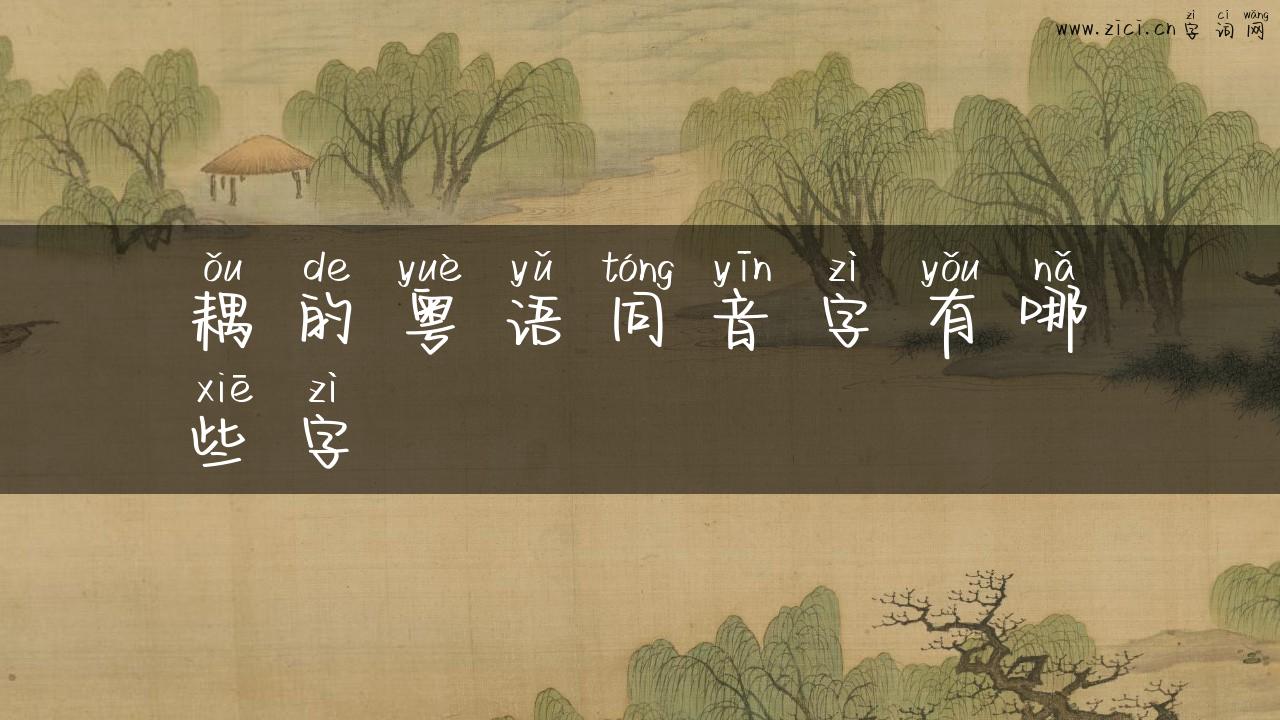 zì cí wǎng
www.zici.cn字词网
ǒu de yuè yǔ tóng yīn zì yǒu nǎ
耦的粤语同音字有哪
xiē zì
些字